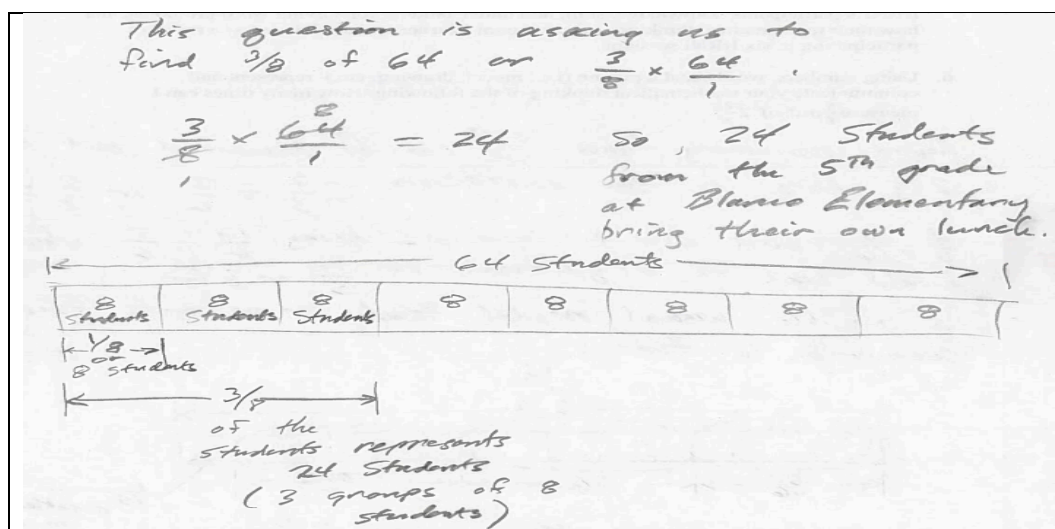 This question is asking us to
find 3/8 of 64 or 3/8 x 64/1 .
3/8 x 64/1 = 24
8
1
So, 24 Students
from the 5TH grade
at Blanco Elementary
bring their own lunch.
64 Students
8 Students 8 Students 8 Students 8 8 8 8 8
1/8
or
8 students
3/8
of the
students represents
24 Students
(3 groups of 8
students)